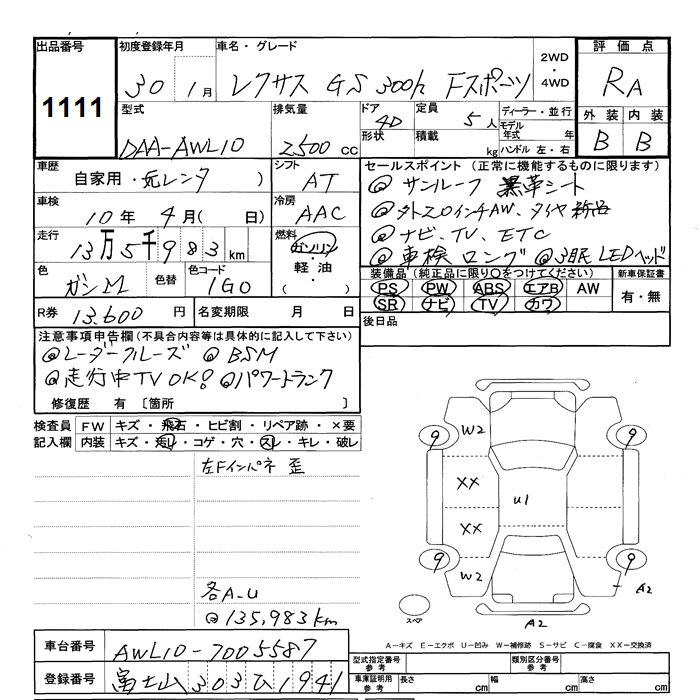 出品番号 初度登録年月 車名・グレード 2WD・4WD 評価点
1111 30 1月 レクサス GS 300h Fスポーツ RA
型式 排気量 ドア 4D 定員 5人 ディーラー・並行 外装 内装
DAA-AWL10 2500cc 形状 積載 kg モデル年式 年 B B
ハンドル 左・右
車歴 自家用・元レンタ ) シフト AT
セールスポイント (正常に機能するものに限ります)
◎サンルーフ 黒革シート
車検 10年 4月( 日) 冷房 AAC
◎ナビ、TV、ETC
走行 13万5千983km 燃料 ガソリン・軽油・( )
◎車検ロング ◎3眼LEDヘッド
色 ガンM 色替 色コード 1G0
装備品 (純正品に限り○をつけてください) 新車保証書
PS PW ABS エアB AW 有・無
SR ナビ TV カワ
R券 13.600円 名変期限 月 日
後日品
注意事項申告欄 (不具合内容等は具体的に記入して下さい)
◎レーダークルーズ ◎BSM
◎走行中TVOK! ◎パワートランク
修復歴 有 〔箇所 〕
検査員 FW キズ・飛石・ヒビ割・リペア跡・×要
記入欄 内装 キズ・汚レ・コゲ・穴・スレ・キレ・破レ
左Fインパネ 歪
各A-U
◎135,983km
9 W2 9
XX U1
XX
9 W2 9
A2
スペア A2
A-キズ E-エクボ U-凹み W-補修跡 S-サビ C-腐食 XX-交換済
車台番号 AWL10-7005587
型式指定番号 参考 類別区分番号 参考
登録番号 富士山 303 ひ 1941
車庫証明用 参考 長さ cm 幅 cm 高さ cm